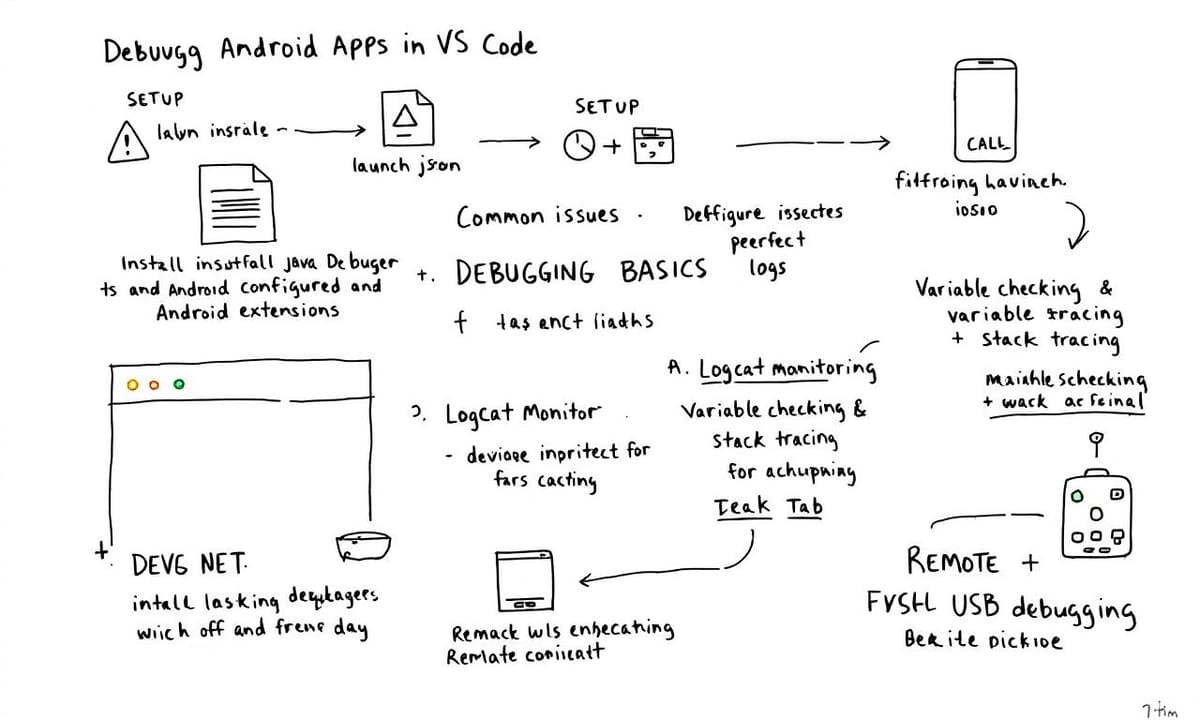 Debuvgg Android Apps in VS Code
SETUP
lalyn insrale
launch json
SETUP
CALL
Install insutfall java Debuger
ts and Android configured and
Android extensions
Common issues
Deffigure issectes
peerfect
logs
+. DEBUGGING BASICS
f tas enct liadhs
fitfroing havinch.
iosio
Variable checking &
variable tracing
+ stack tracing
Maiahle schecking
+ wack ac feinal
A. Logcat monitoring
Variable checking &
stack tracing
for achupning
Teak Tab
Ɔ. Logcat Monitor
- devioge inpritect for
fars cacting
+ DEVG NET.
intall lasking deqykagers
wiich off and frene day
Remack wls enhecathing
Remlate coniicatt
REMOTE +
FYSH-L USB debugging
Bekite Dickioe
7-tim